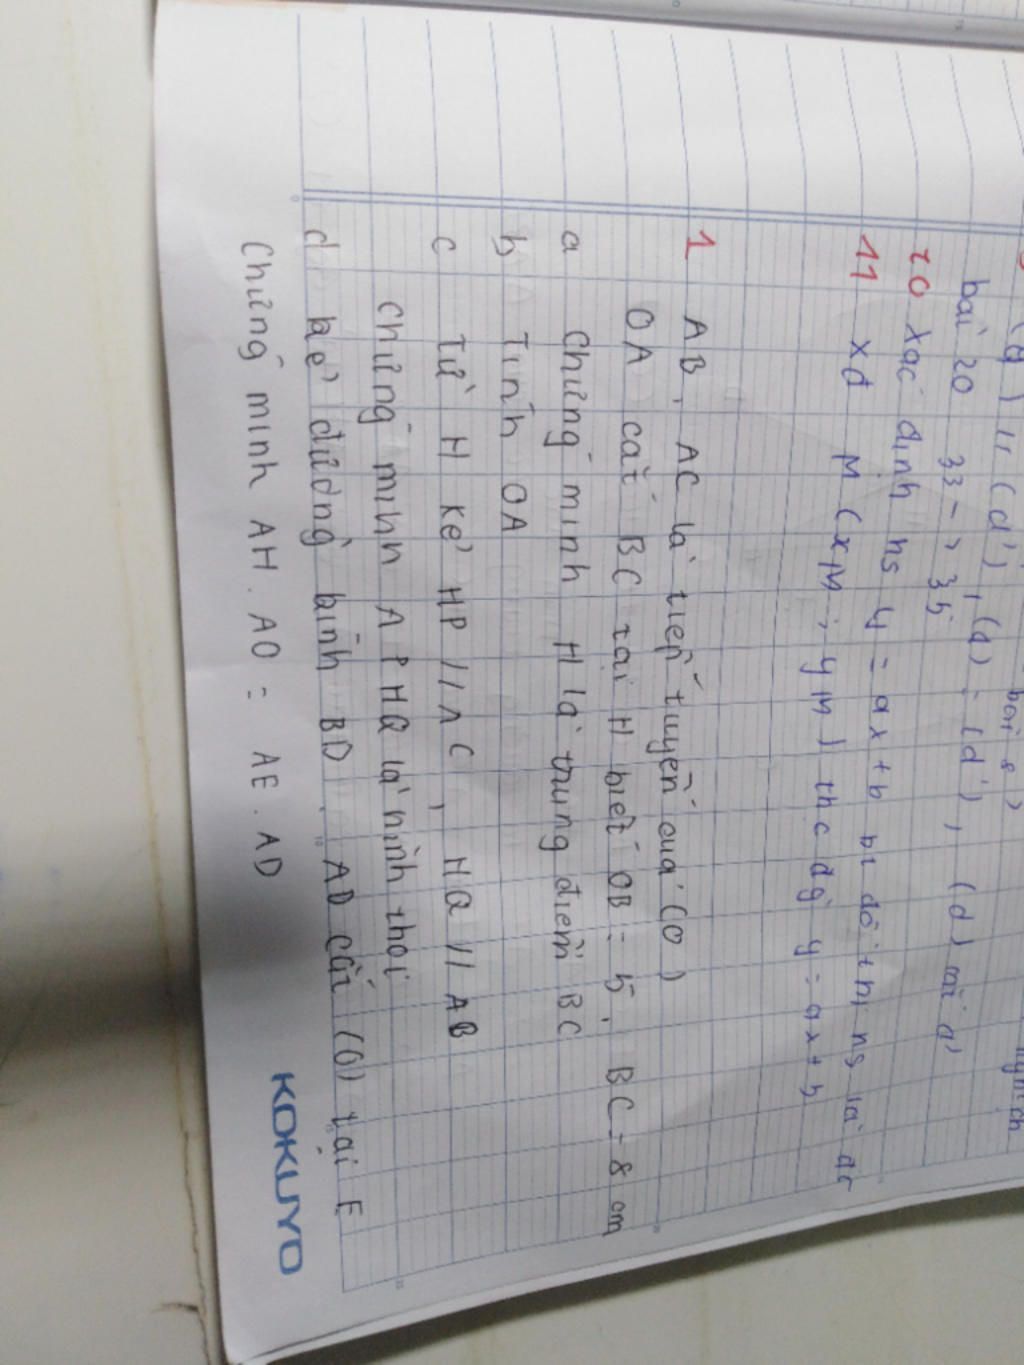 (d) // (d'), (d) ≡ (d'), (d) cắt d'
bài 20 33 -> 35
10 xác định hs y = ax + b
11 xđ M (xM ; yM)
1 AB, AC là tiếp tuyến của (O)
OA cắt BC tại H biết OB = 5, BC = 8 cm
a Chứng minh H là trung điểm BC
b Tính OA
c Từ H kẻ HP // AC, HQ // AB
Chứng minh APHQ là hình thoi
d kẻ đường kính BD. AD cắt (O) tại E
Chứng minh AH. AO = AE. AD
KOKUYO